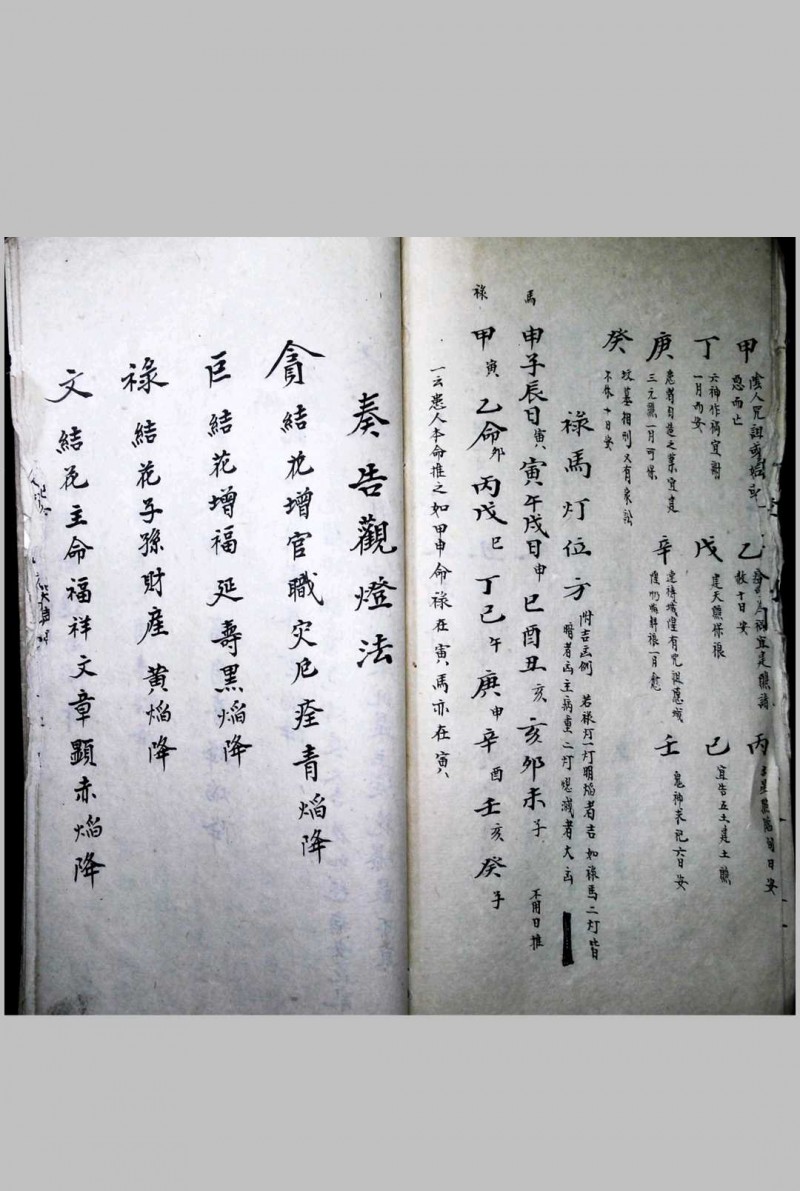 甲 陰人咒詛 惡而亡 乙 宜建醮 散十日安 丙 日安
丁 六神作禍宜謝 一月而安 戊 建天醮保禄 己 宜告五土建土醮
庚 患者自造之業宜建 三元醮一月可保 辛 連禱城隍有咒 一月愈 壬 鬼神求祀六日安
癸 坟墓相刑又有象訟 不休十日安
禄馬灯位方 附吉凶例 若禄灯一灯明焰者吉 如禄馬二灯皆 暗者凶主病重 二灯熄滅者大凶
馬 申子辰日寅 寅午戌日申 巳酉丑亥 亥卯未子 不用日推
禄 甲寅 乙命卯 丙戊巳 丁己午 庚申 辛酉 壬亥 癸子
一云患人本命推之如甲申命禄在寅馬亦在寅
奏告觀燈法
貪 結花增官職灾厄痊青焰降
巨 結花增福延壽黑焰降
禄 結花子孫財産黄焰降
文 結花主命福祥文章顯赤焰降